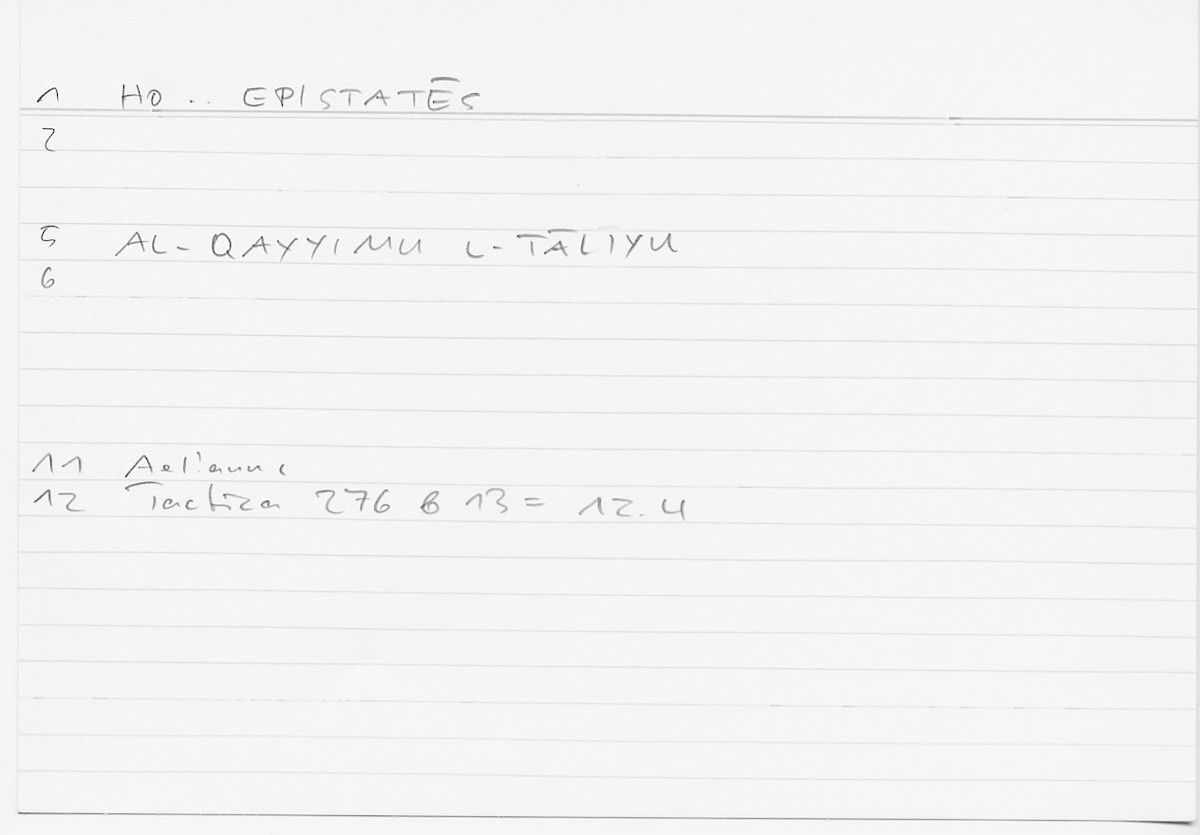 1 HO .. EPISTATĒS
2
5 AL-QAYYIMU L-TĀLIYU
6
11 Aelianus
12 Tactica 276 B 13 = 12.4